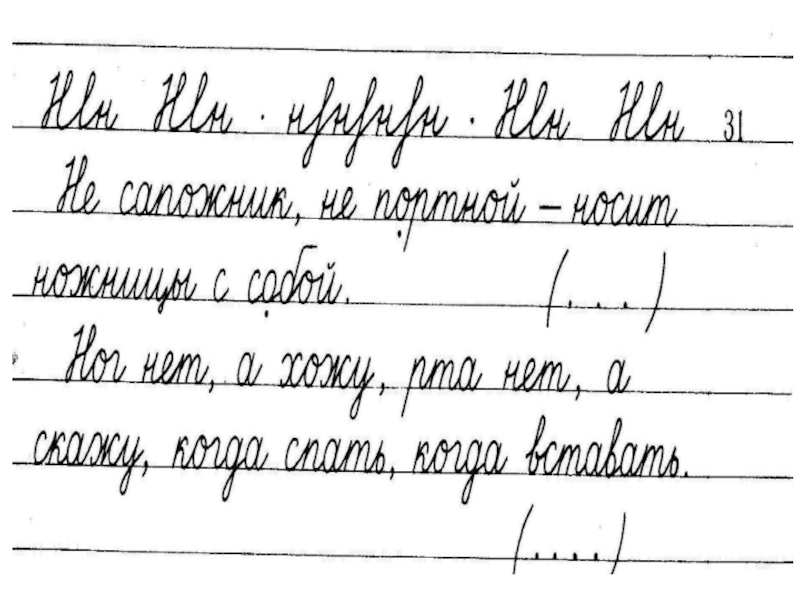 Нн Нн · ннннн · Нн Нн 31
Не сапожник, не портной – носит
ножницы с собой. (. . .)
Ног нет, а хожу, рта нет, а
скажу, когда спать, когда вставать.
(. . . .)